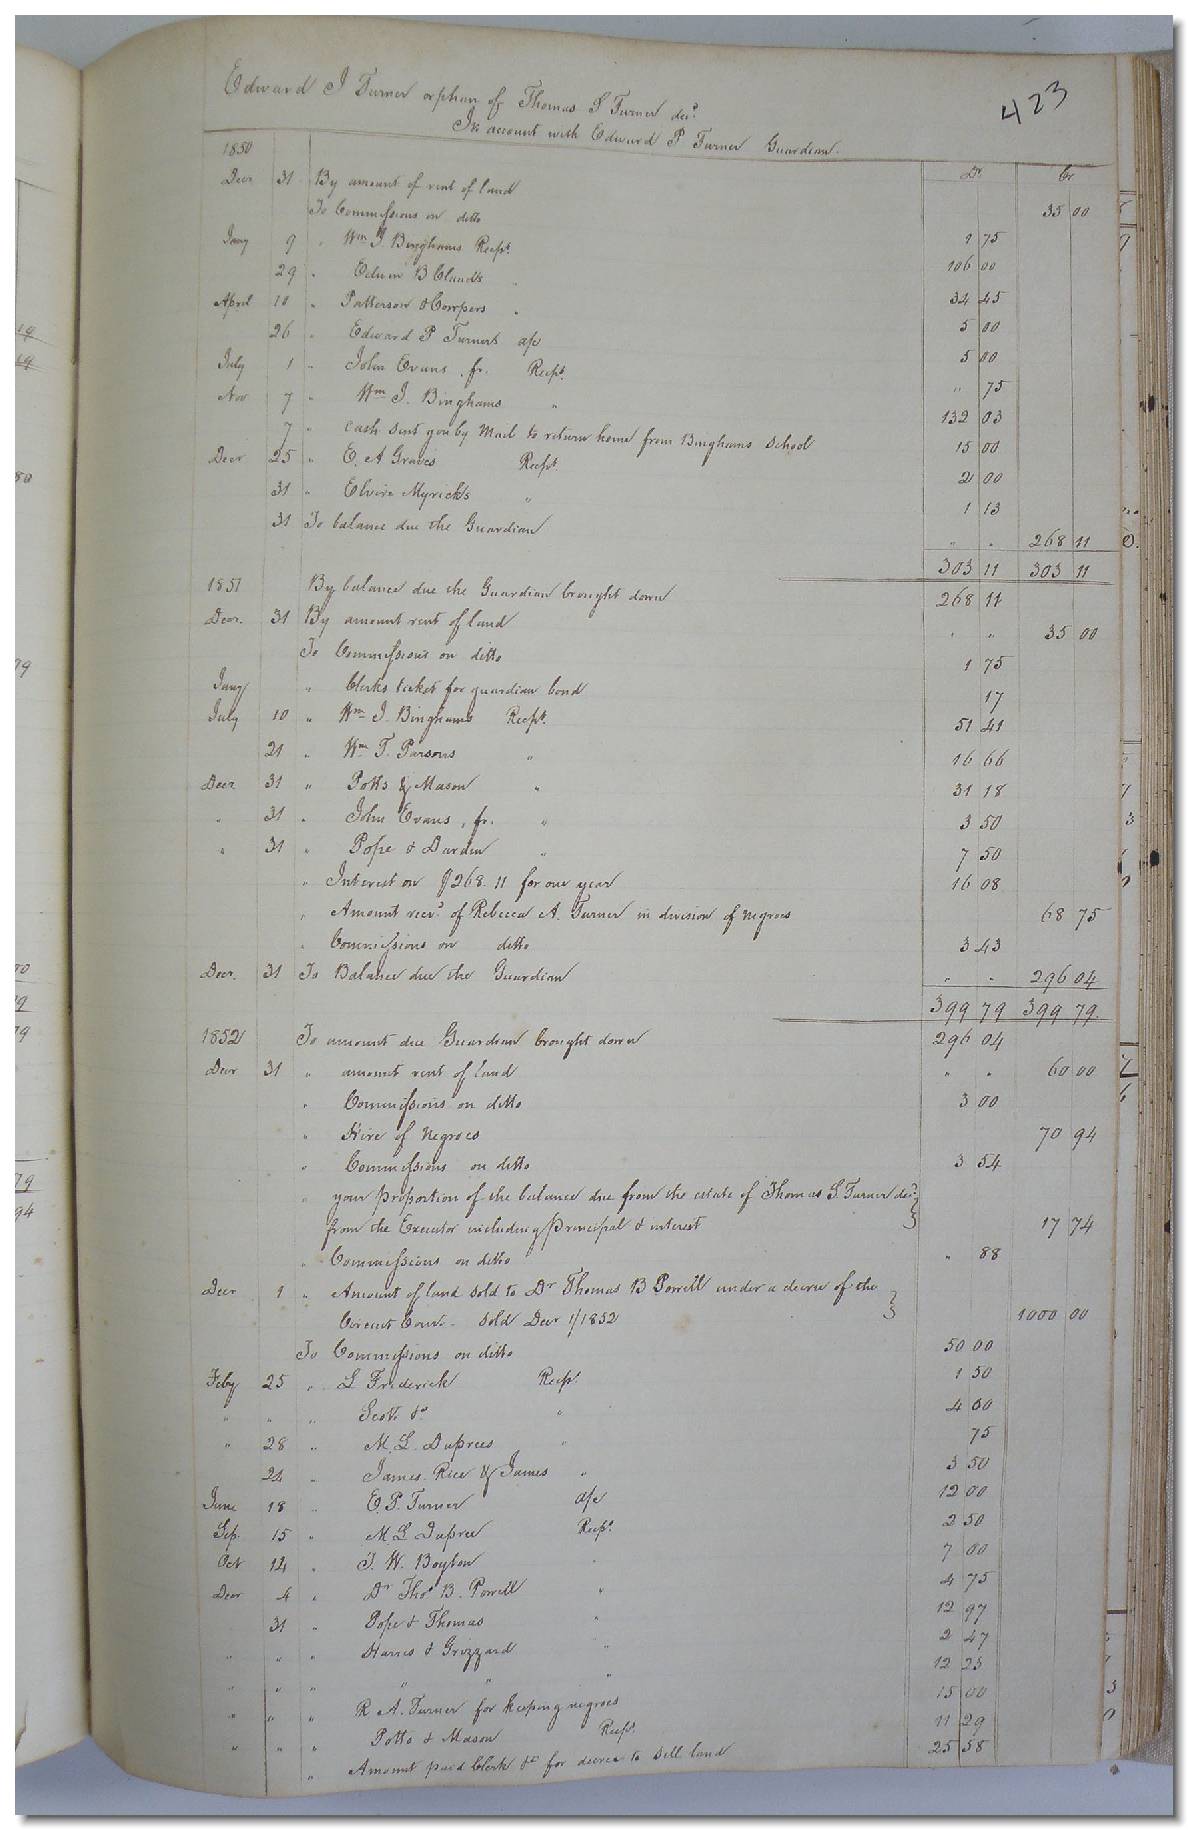 423
Edward J Turner orphan of Thomas S Turner decd.
In account with Edward P Turner Guardian.
1850 Dr Cr
Decr 31 By amount of rent of land 35 00
To Commissions on ditto 1 75
Jany 9 " Wm J. Binghams Recpt. 106 00
29 " Edwin B Clauds " 34 45
April 10 " Patterson & " 5 00
26 " Edward P Turners a/c 5 00
July 1 " John Evans, fr. Recpt. " 75
Nov 7 " Wm J. Binghams " 132 03
7 " Cash sent you by Mail to return home from Binghams School 15 00
Decr 25 " E. A Graves Recpt. 2 00
31 " Elvira Myricks " 1 13
31 To balance due the Guardian " " 268 11
303 11 303 11
1851 By balance due the Guardian brought down 268 11
Decr. 31 By amount rent of land " " 35 00
To Commissions on ditto 1 75
Jany " Clerks ticket for guardian bond 17
July 10 " Wm J. Binghams Recpt. 51 41
21 " Wm T. Parsons " 16 66
Decr 31 " Potts & Mason " 31 18
" 31 " John Evans, fr. " 3 50
" 31 " Pope & Darden " 7 50
" Interest on $268.11 for one year 16 08
" Amount recvd. of Rebecca A. Turner in division of negroes 68 75
" Commissions on ditto 3 43
Decr. 31 To Balance due the Guardian " " 296 04
399 79 399 79.
1852 To amount due Guardian brought down 296 04
Decr 31 " amount rent of land " " 60 00
" Commissions on ditto 3 00
" Hire of negroes 70 94
" Commissions on ditto 3 54
" your proportion of the balance due from the estate of Thomas S. Turner decd.
from the Executor including principal & interest 17 74
" Commissions on ditto " 88
Decr 1 " Amount of land sold to Dr Thomas B Powell under a decree of the
Circuit Court. Sold Decr 1/1852 1000 00
To Commissions on ditto 50 00
Feby 25 " L Frederick Recpt. 1 50
" " " Scott & " 4 00
" 28 " M. L. Duprees " 75
24 " James. Rice & James " 3 50
June 18 " E. P. Turner a/c 12 00
Sep. 15 " M. L Dupree Recpt. 2 50
Oct 14 " J. W. Boykon " 7 00
Decr 4 " Dr Thos B. Powell " 4 75
31 " Pope & Thomas " 12 97
" " " Harris & Grizzard " 2 47
" " " " " " 12 25
" " " R A. Turner for keeping negroes 15 00
" " " Potts & Mason Recpt. 11 29
" Amount paid Clerk &c for decree to sell land 25 58